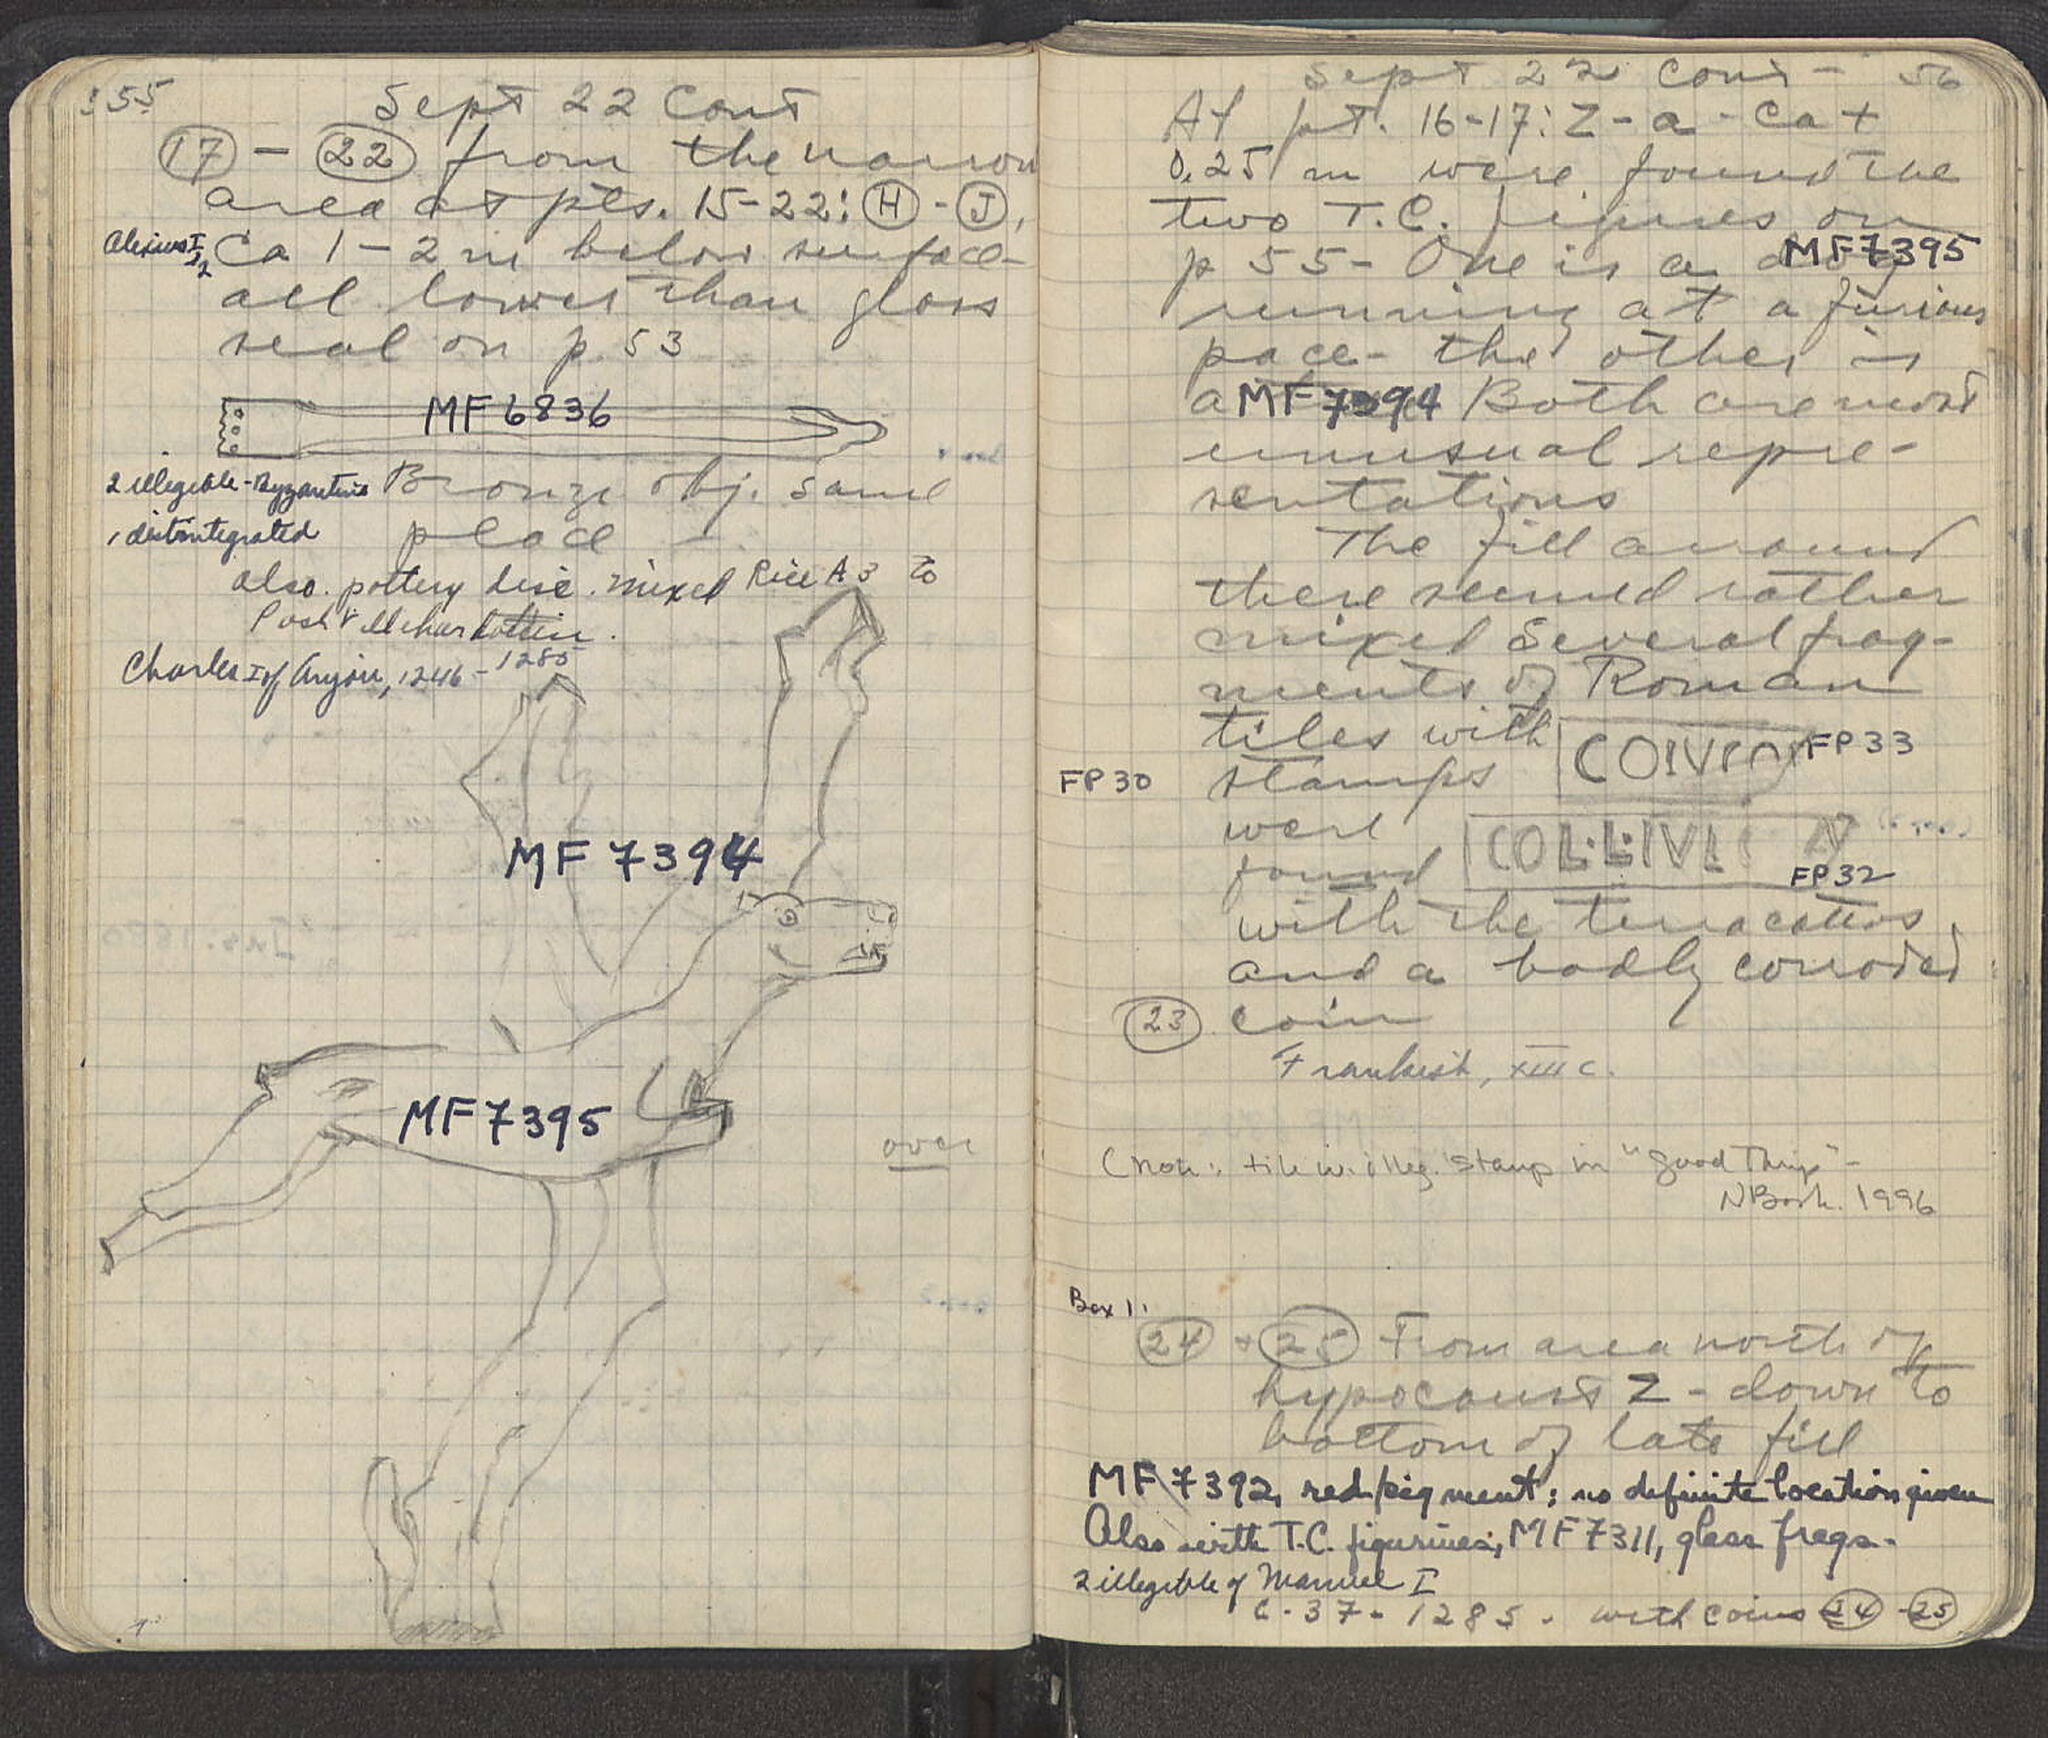 55
Sept 22 Cont
17 - 22 from the narrow
area at pts. 15-22: H - J,
Alexius I, 2
Ca 1-2 m below surface-
all lower than glass
seal on p. 53
MF 6836
2 illegible - Byzantine
1 disintegrated
Bronze obj. same
place
also. pottery disc. mixed Rice A3 to
Charles I of Anjou, 1246-1285
MF 7394
MF 7395
over
Sept 22 Cont - 56
At pt. 16-17: Z-a - Ca +
0.25 m were found the
two T.C. figures on
p 55- One is a dog MF 7395
running at a furious
pace- the other is
a MF 7394 Both are most
unusual repre-
sentations
The fill around
there seemed rather
mixed Several frag-
ments of Roman
tiles with
FP 33
FP 30
stamps
were
found
FP 32
with the terracottas
and a badly corroded
23 coin
Frankish, XIII c.
(Note: tile w. illeg. stamp in "Good Things" -
NBook. 1996
Box 1:
24 + 25 From area north of
hypocaust Z - down to
bottom of late fill
MF 7392, red pigment; no definite location given
Also with T.C. figurines, MF 7311, glass frags.
2 illegible of Manuel I
C-37-1285. with coins 24 - 25